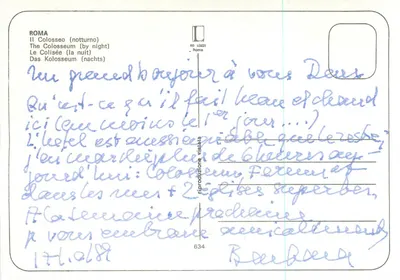 ROMA
Il Colosseo (notturno)
The Colosseum (by night)
Le Colisée (la nuit)
Das Kolosseum (nachts)
Un grand bonjour à vous Deux
Qu'est-ce qu'il fait beau et chaud
ici (au moins le 1er jour....)
L'hôtel est aussi
j'ai marché plus de 6 heures au-
jourd'hui: Colosseum, Forum et
dans les rues + 2 églises superbes
A la semaine prochaine
je vous embrasse amicalement
Barbara
riproduzione vietata
634